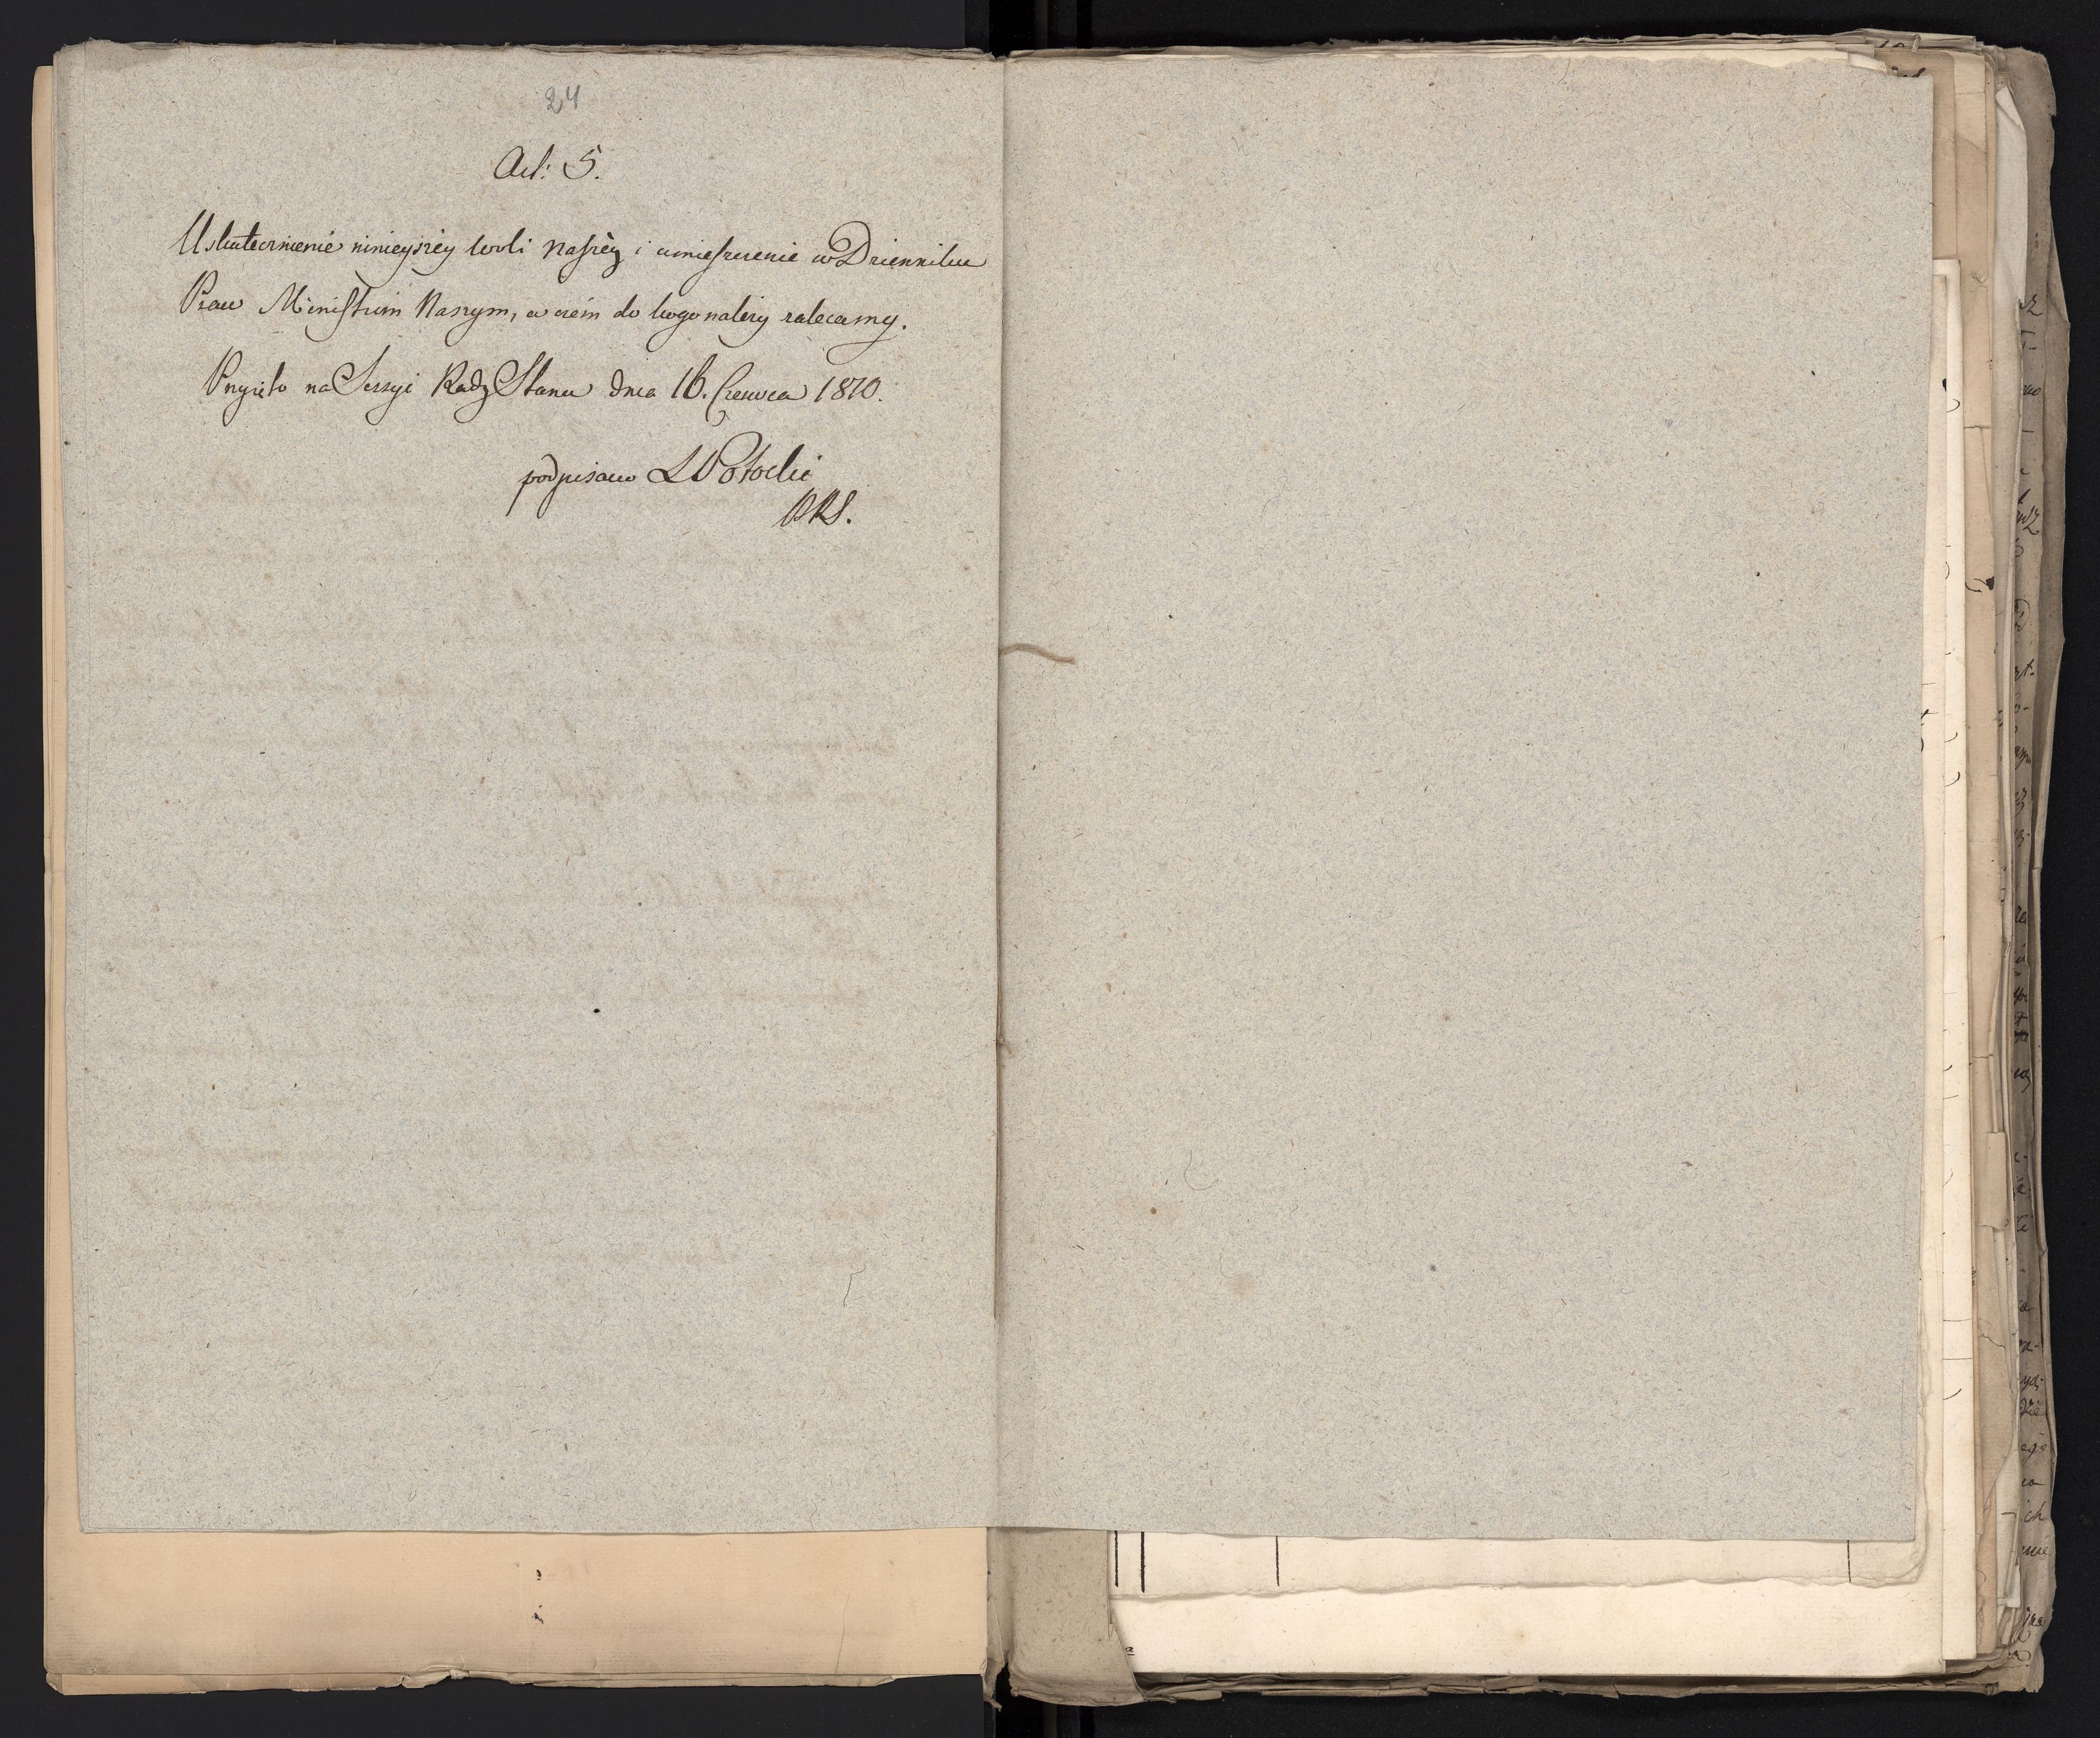 24
Art: 5.
Uskutecznienie ninieyszéy woli Naszéy i umieszczenie w Dzienniku
Praw Ministrom Naszym, w czém do kogo należy zalecamy.
Przyięto na Sessyi Rady Stanu dnia 16. Czerwca 1810.
podpisano S Potocki
PRS.